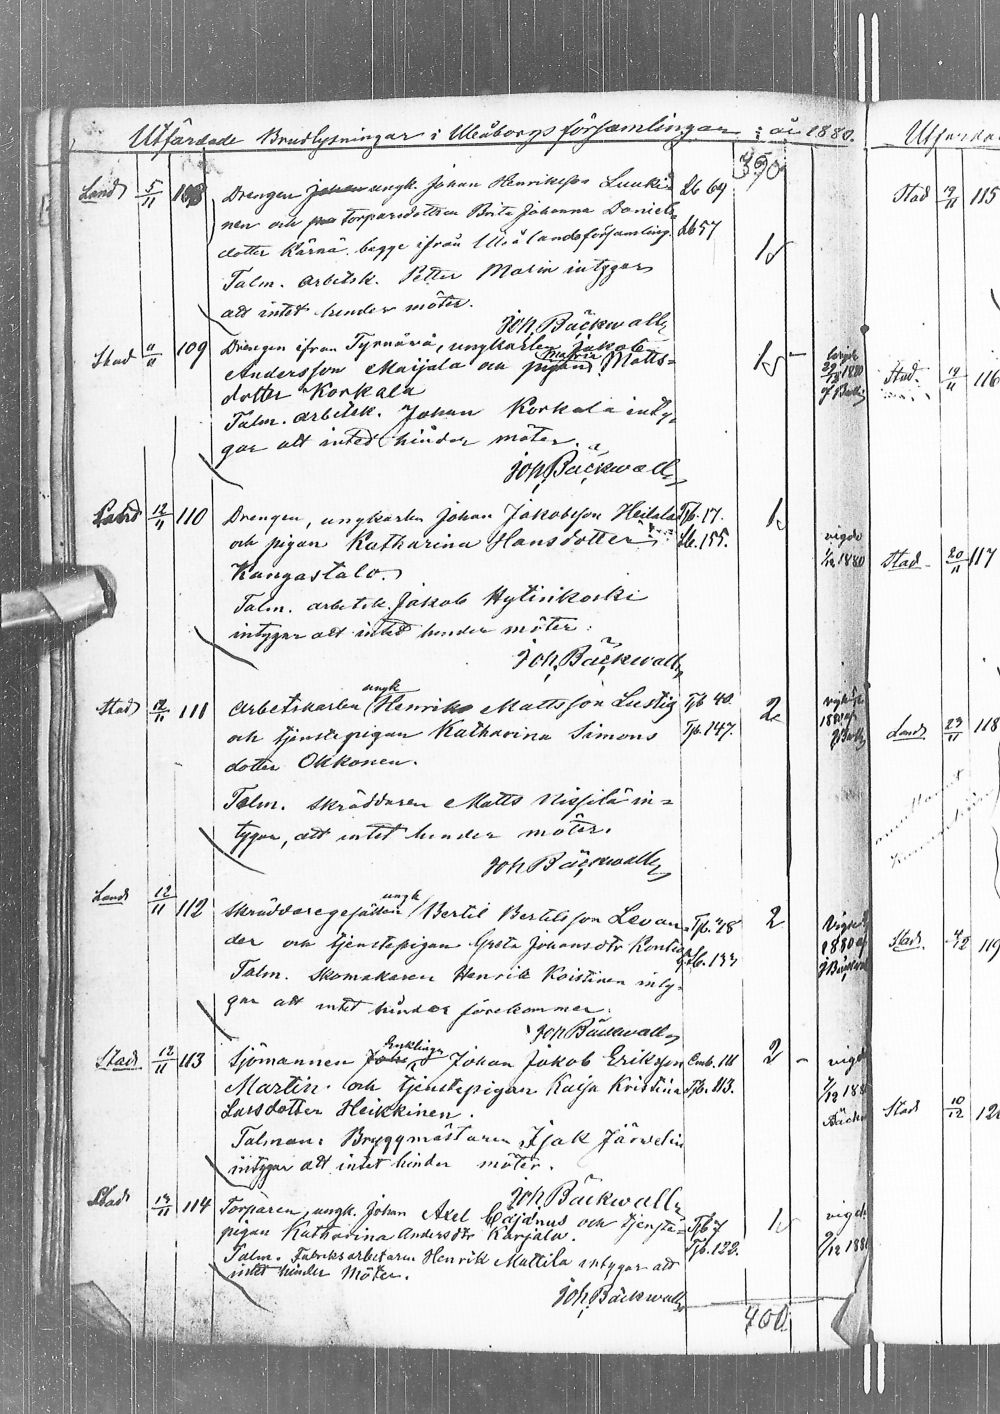 Utfärdade Brudlysningar i Uleåborgs församlingar: år 1880.
390
Land 5/11 108 Drengen ungk. Johan Henriksson Luuki- Lb 69
nen och Torparedottren Brita Johanna Daniels- Lb 57
dotter Kärnä begge ifrån Uleå landsförsamling. 1
Talm. arbetsk. Petter Matin intygar
att intet hinder möter.
Joh. Bäckwall
Stad 11/11 109 Drengen ifrån Tyrnävä, ungkarlen Jakob
Andersson Maijala och pigan Maria Matts-
dotter Korkala
Talm. arbetsk. Johan Korkala inty-
gar att intet hinder möter.
Joh. Bäckwall
Land 12/11 110 Drengen, ungkarlen Johan Jakobsson Heilala Tjb. 17. 1
och pigan Katharina Hansdotter Lb. 155. vigde
Kangastalo. 1/12 1880
Talm. arbetsk. Jakob Hytinkoski
intygar att intet hinder möter.
Joh. Bäckwall
Stad 12/11 111 Arbetskarlen ungk Henrik Mattsson Lustig Tjb 40. 2
och tjenstepigan Katharina Simons Tjb. 147.
dotter Okkonen.
Talm. skräddaren Matts Nissilä in-
tygar, att intet hinder möter.
Joh Bäckwall
Land 12/11 112 Skräddaregesällen ungk Bertil Bertilsson Levan- Tjb. 48 2
der och tjenstepigan Greta Johansdtr Kontio 1880
Talm. Skomakaren Henrik Koistinen inty-
gar att intet hinder förekommer.
Joh Bäckwall
Stad 12/11 113 Sjömannen Enklinge Johan Jakob Eriksson Emb. 111 2 -
Martin och tjenstepigan Kaisa Kristina Tjb. 113.
Larsdotter Heikkinen.
Talman: Bryggmästaren Isak Järvelin
intygar att intet hinder möter.
Joh Bäckwall
Stad 13/11 114 Torparen, ungk. Johan Axel Cajanus och tjenste- Tjb 7 1
pigan Katharina Andersdtr Karjala. Tjb. 122.
Talm. Fabriksarbetaren Henrik Mattila intygar att
intet hinder möter.
Joh. Bäckwall
400
Utfärda
Stad 19/11 115
Stad. 19/11 116
Stad 20/11 117
Land 23/11 118
Stad. 4/12 119
Stad 10/12